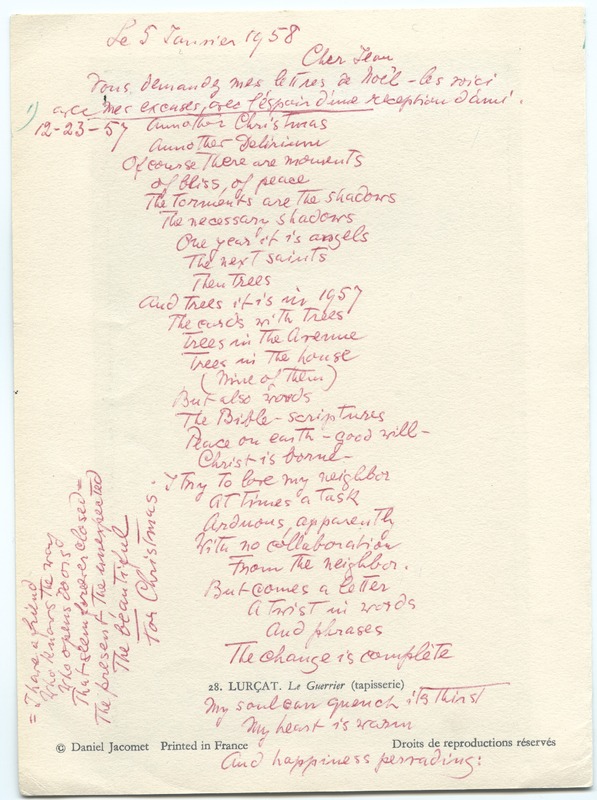 Le 5 Janvier 1958
Cher Jean
Vous demandez mes lettres de Noël - les voici
avec mes excuses, avec l'éspoir d'une reception d'ami.
1)
12-23-57 Annother Christmas
Annother Delirium
Of course There are moments
of bliss, of peace
The torments are The shadows
The necessary shadows
One year it is angels
The next saints
Then trees
And Trees it is in 1957
The cards with Trees
Trees in The Avenue
Trees in The house
(Nine of Them)
But also words
The Bible - scriptures
Peace on earth - good will -
Christ is borne -
I try to love my neighbor
At Times a Task
Arduous, apparently
With no collaboration
From The neighbor.
But comes a letter
A Twist in words
And phrases
The change is complete
28. LURÇAT. Le Guerrier (tapisserie)
My soul can quench its Thirst
My heart is warm
© Daniel Jacomet Printed in France Droits de reproductions réservés
And happiness pervading:
= I have a friend
Who knows The way
Who opens Doors
That seem forever closed =
The present - The unexpected
The beautiful
For Christmas.